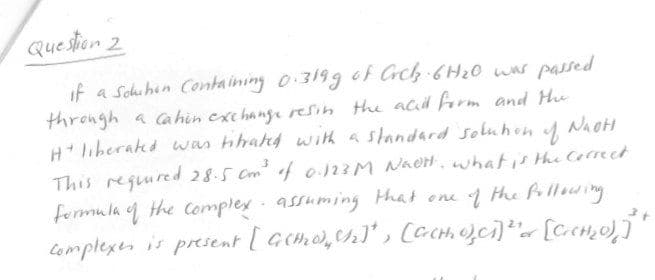 Question 2
if a solution Containing 0.319g of CrCl3.6H2O was passed
through a cation exchange resin the acid form and the
H+ liberated was titrated with a standard solution of NaOH
This required 28.5 cm3 of 0.123M NaOH. what is the correct
formula of the complex. assuming that one of the following
complexes is present [Cr(H2O)4Cl2]+, [Cr(H2O)5Cl]2+ or [Cr(H2O)6]3+